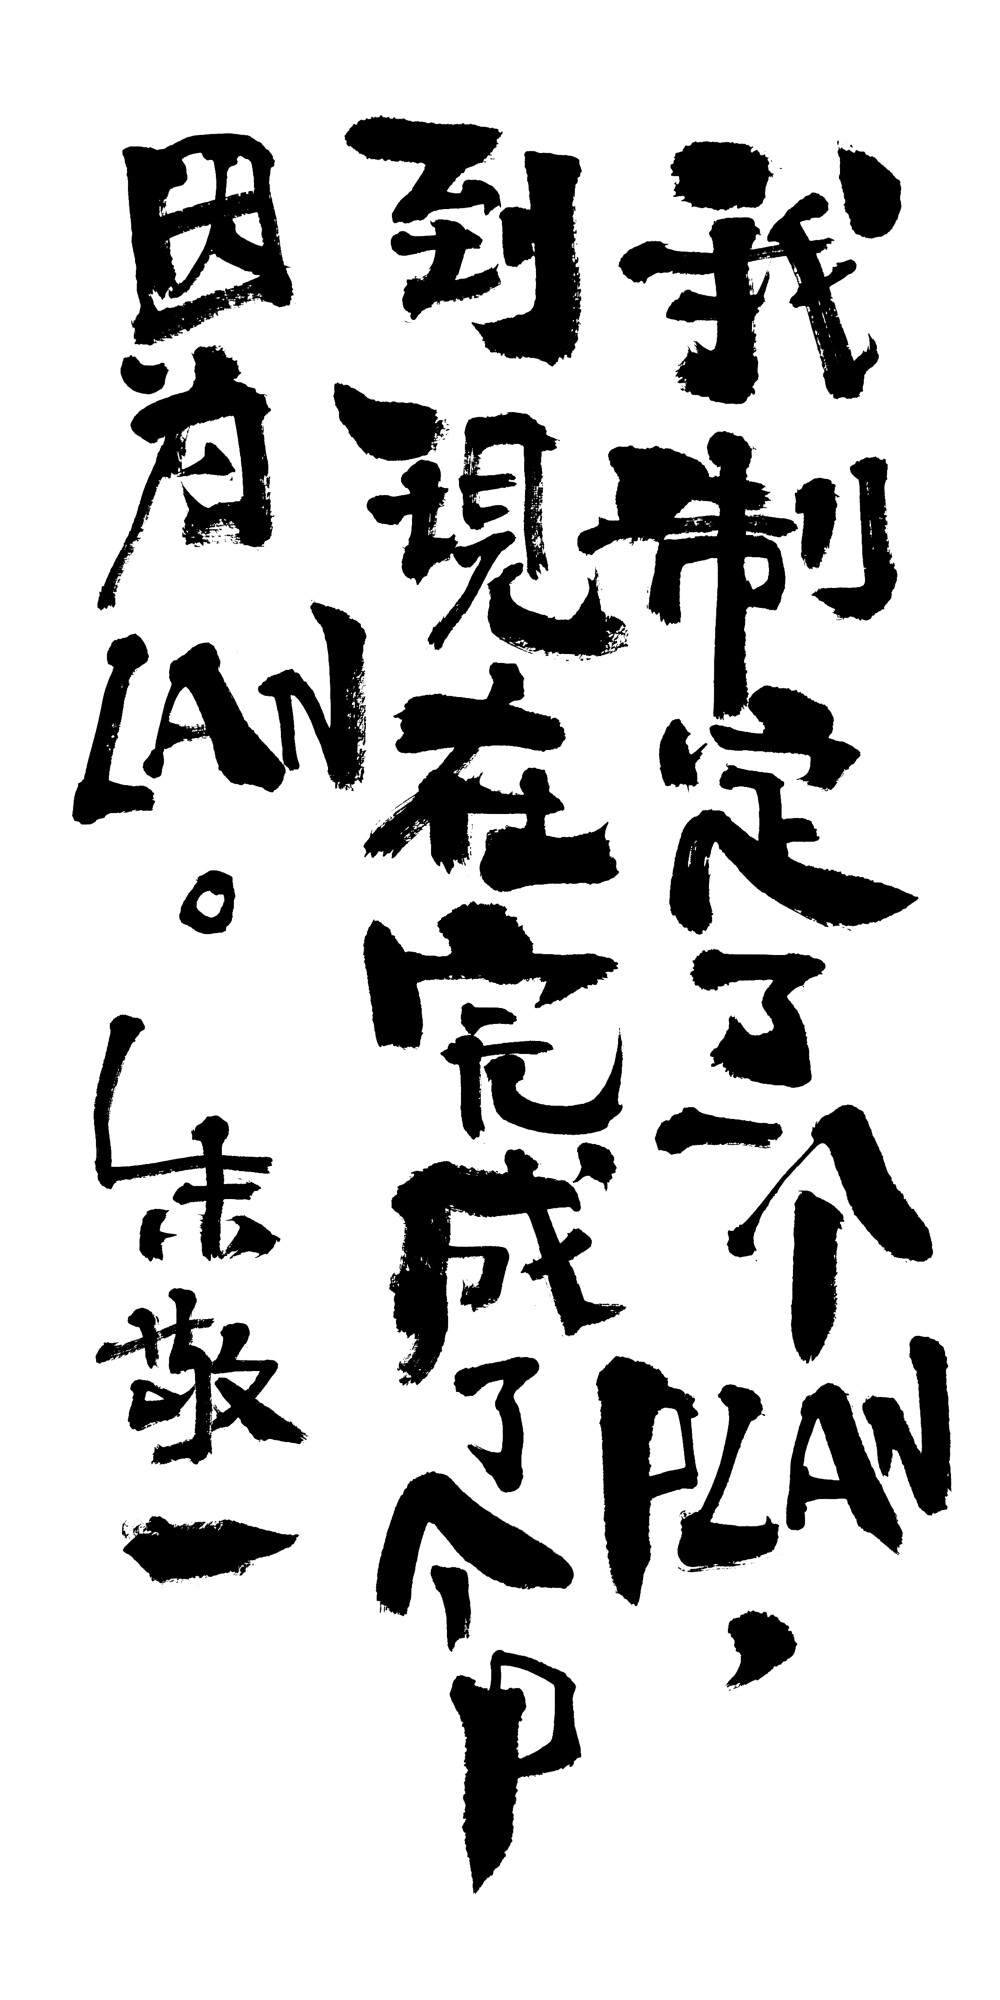 我制定了一个PLAN，
到现在完成了个P
因为LAN。
朱敬一